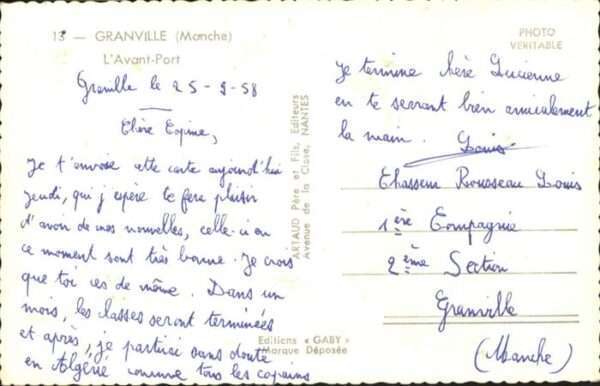 13 — GRANVILLE (Manche)
L'Avant-Port
PHOTO
VERITABLE
Granville le 25-9-58
Chère Copine,
Je t'envoie cette carte aujourd'hui
jeudi, qui j'espère te fera plaisir
d'avoir de mes nouvelles, celle-ci en
ce moment sont très bonne. Je crois
que toi ces de même. Dans un
mois, les classes seront terminées
et après, je partirai sans doute
en Algérie comme tous les copains
ARTAUD Père et Fils, Editeurs
Avenue de la Close, NANTES
Editions « GABY »
Marque Déposée
Je termine chère Lucienne
en te serrant bien amicalement
la main. Louis
Chasseur Rousseau Louis
1ère Compagnie
2ème Section
Granville
(Manche)